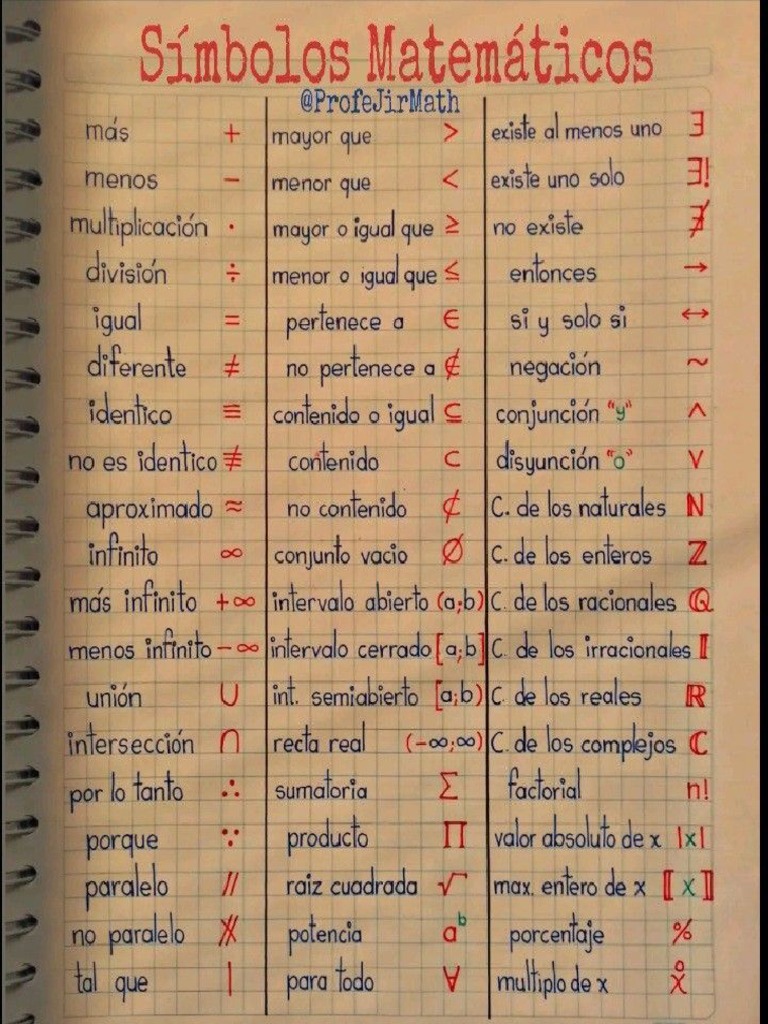 Símbolos Matemáticos
@ProfeJirMath
más +
menos −
multiplicación ·
división ÷
igual =
diferente ≠
identico ≡
no es identico ≢
aproximado ≈
infinito ∞
más infinito +∞
menos infinito −∞
unión ∪
intersección ∩
por lo tanto ∴
porque ∵
paralelo //
no paralelo ∦
tal que |
mayor que >
menor que <
mayor o igual que ≥
menor o igual que ≤
pertenece a ∈
no pertenece a ∉
contenido o igual ⊆
contenido ⊂
no contenido ⊄
conjunto vacio ∅
intervalo abierto (a;b)
intervalo cerrado [a;b]
int. semiabierto [a;b)
recta real (−∞;∞)
sumatoria Σ
producto Π
raiz cuadrada √
potencia aᵇ
para todo ∀
existe al menos uno ∃
existe uno solo ∃!
no existe ∄
entonces →
si y solo si ↔
negación ~
conjunción "y" ∧
disyunción "o" ∨
C. de los naturales ℕ
C. de los enteros ℤ
C. de los racionales ℚ
C. de los irracionales 𝕀
C. de los reales ℝ
C. de los complejos ℂ
factorial n!
valor absoluto de x |x|
max. entero de x ⟦x⟧
porcentaje %
multiplo de x x̊